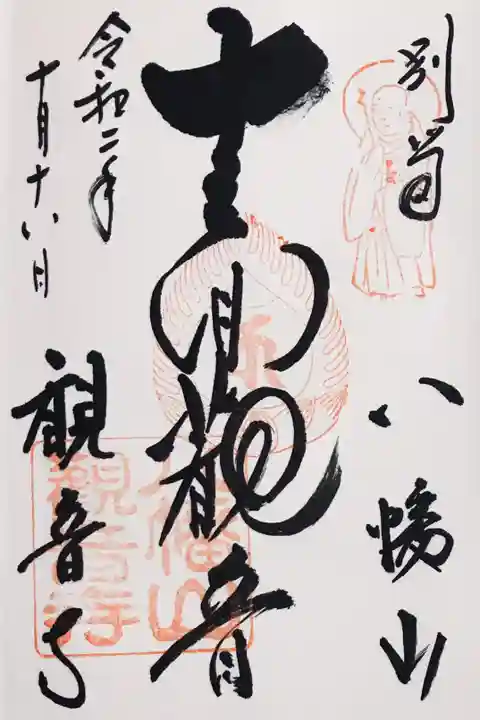 八幡山
十一面観音
令和二年
十月十八日
観音寺
八幡山
觀音寺